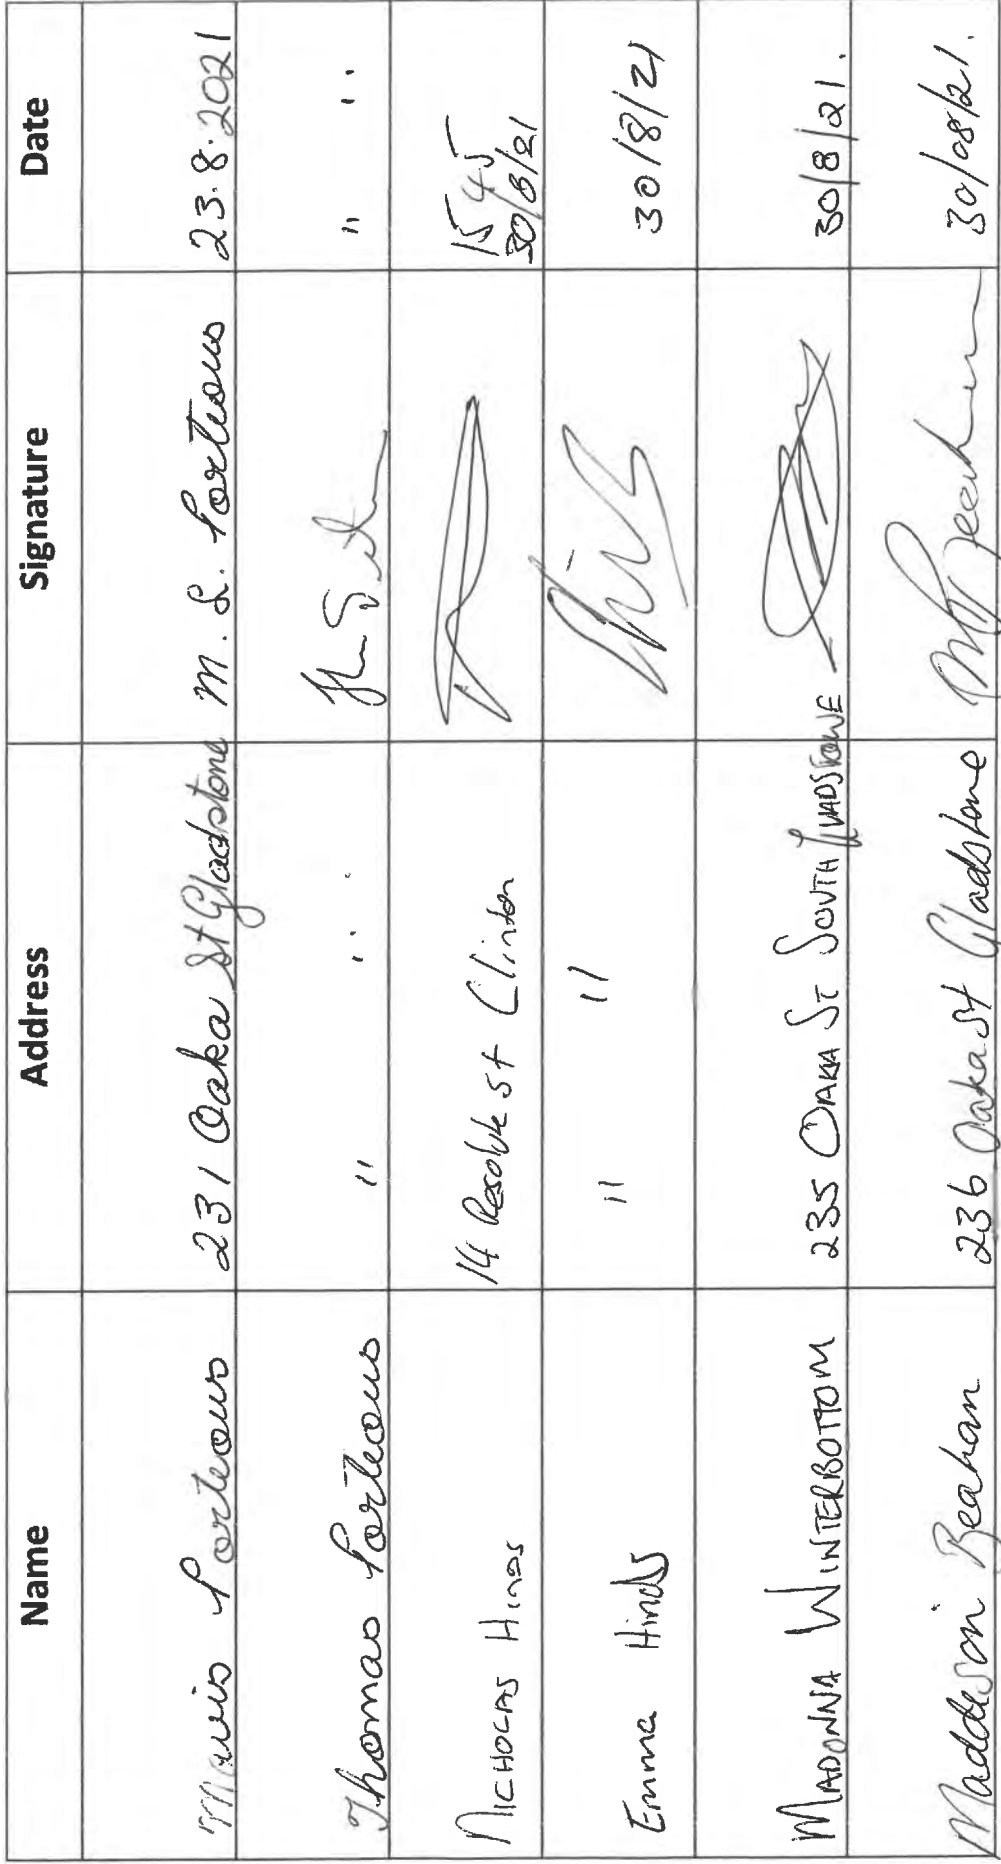 Name Address Signature Date
Mavis Porteous 231 Oaka St Gladstone M. L. Porteous 23.8.2021
Thomas Porteous " " " "
NICHOLAS HINDS 14 Resolute St Clinton 15 45
30/8/21
Emma Hinds " " 30/8/21
MADONNA WINTERBOTTOM 235 OAKA ST SOUTH GLADSTONE 30/8/21.
Maddison Beahan 236 Oaka St Gladstone 30/08/21.